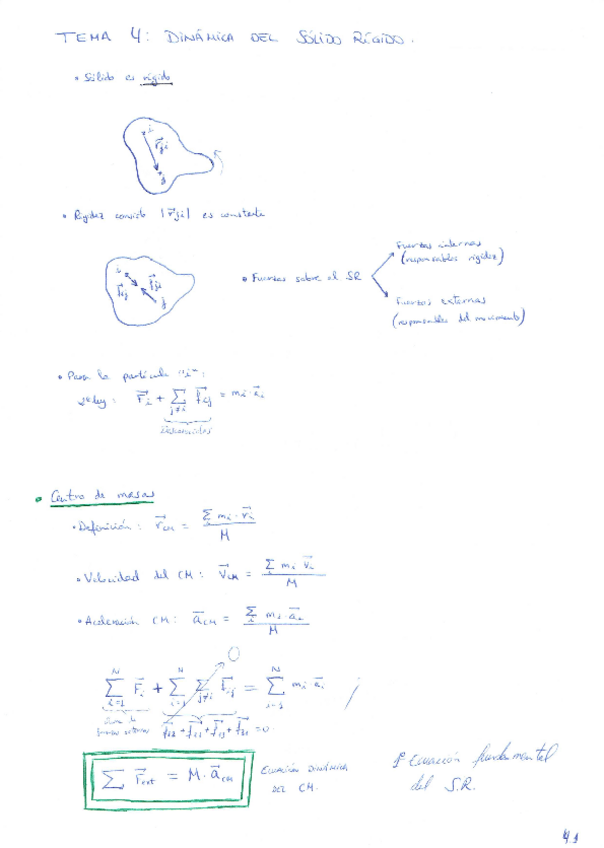 TEMA 4: DINÁMICA DEL SÓLIDO RÍGIDO.
• Sólido es rígido
i
r⃗ji
j
• Rigidez consiste |r⃗ji| es constante
i
f⃗ij
f⃗ji
j
• Fuerzas sobre el SR
Fuerzas internas
(responsables rigidez)
Fuerzas externas
(responsables del movimiento)
• Para la partícula "i":
2ª ley: F⃗i + ∑j≠i f⃗ij = mi · a⃗i
• Centro de masas
• Definición: r⃗CM = ∑i mi · r⃗i / M
• Velocidad del CM: V⃗CM = ∑i mi V⃗i / M
• Aceleración CM: a⃗CM = ∑i mi a⃗i / M
0
∑i=1^N F⃗i + ∑i=1^N ∑j≠i f⃗ij = ∑i=1^N mi a⃗i ;
Suma de
fuerzas externas
∑ F⃗ext = M · a⃗CM
ECUACIÓN DINÁMICA
DEL CM.
1ª Ecuación fundamental
del S.R.
4.1